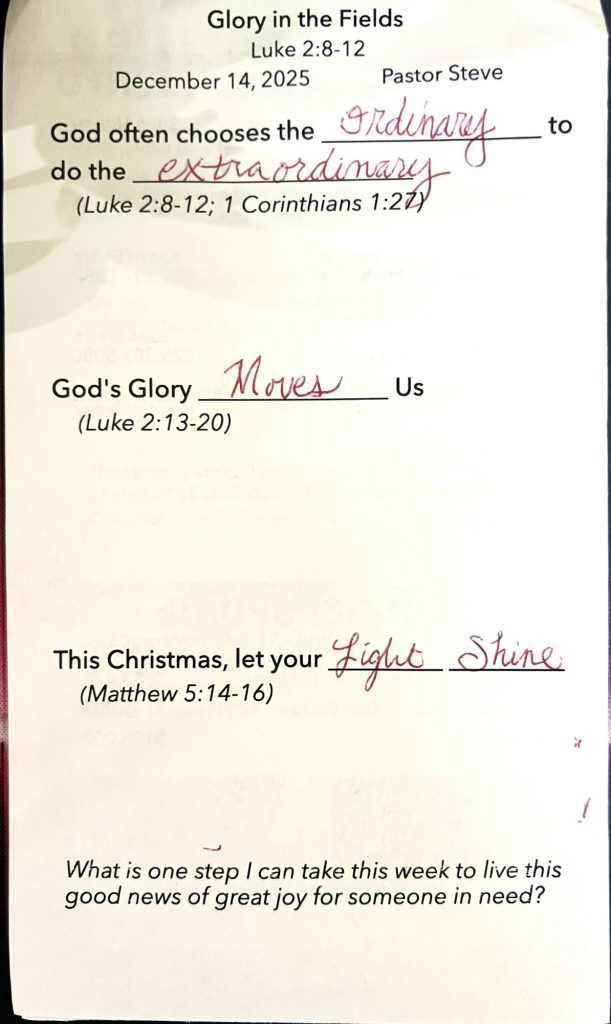 Glory in the Fields
Luke 2:8-12
December 14, 2025 Pastor Steve
God often chooses the ordinary to
do the extraordinary
(Luke 2:8-12; 1 Corinthians 1:27)
God's Glory Moves Us
(Luke 2:13-20)
This Christmas, let your Light Shine
(Matthew 5:14-16)
What is one step I can take this week to live this
good news of great joy for someone in need?